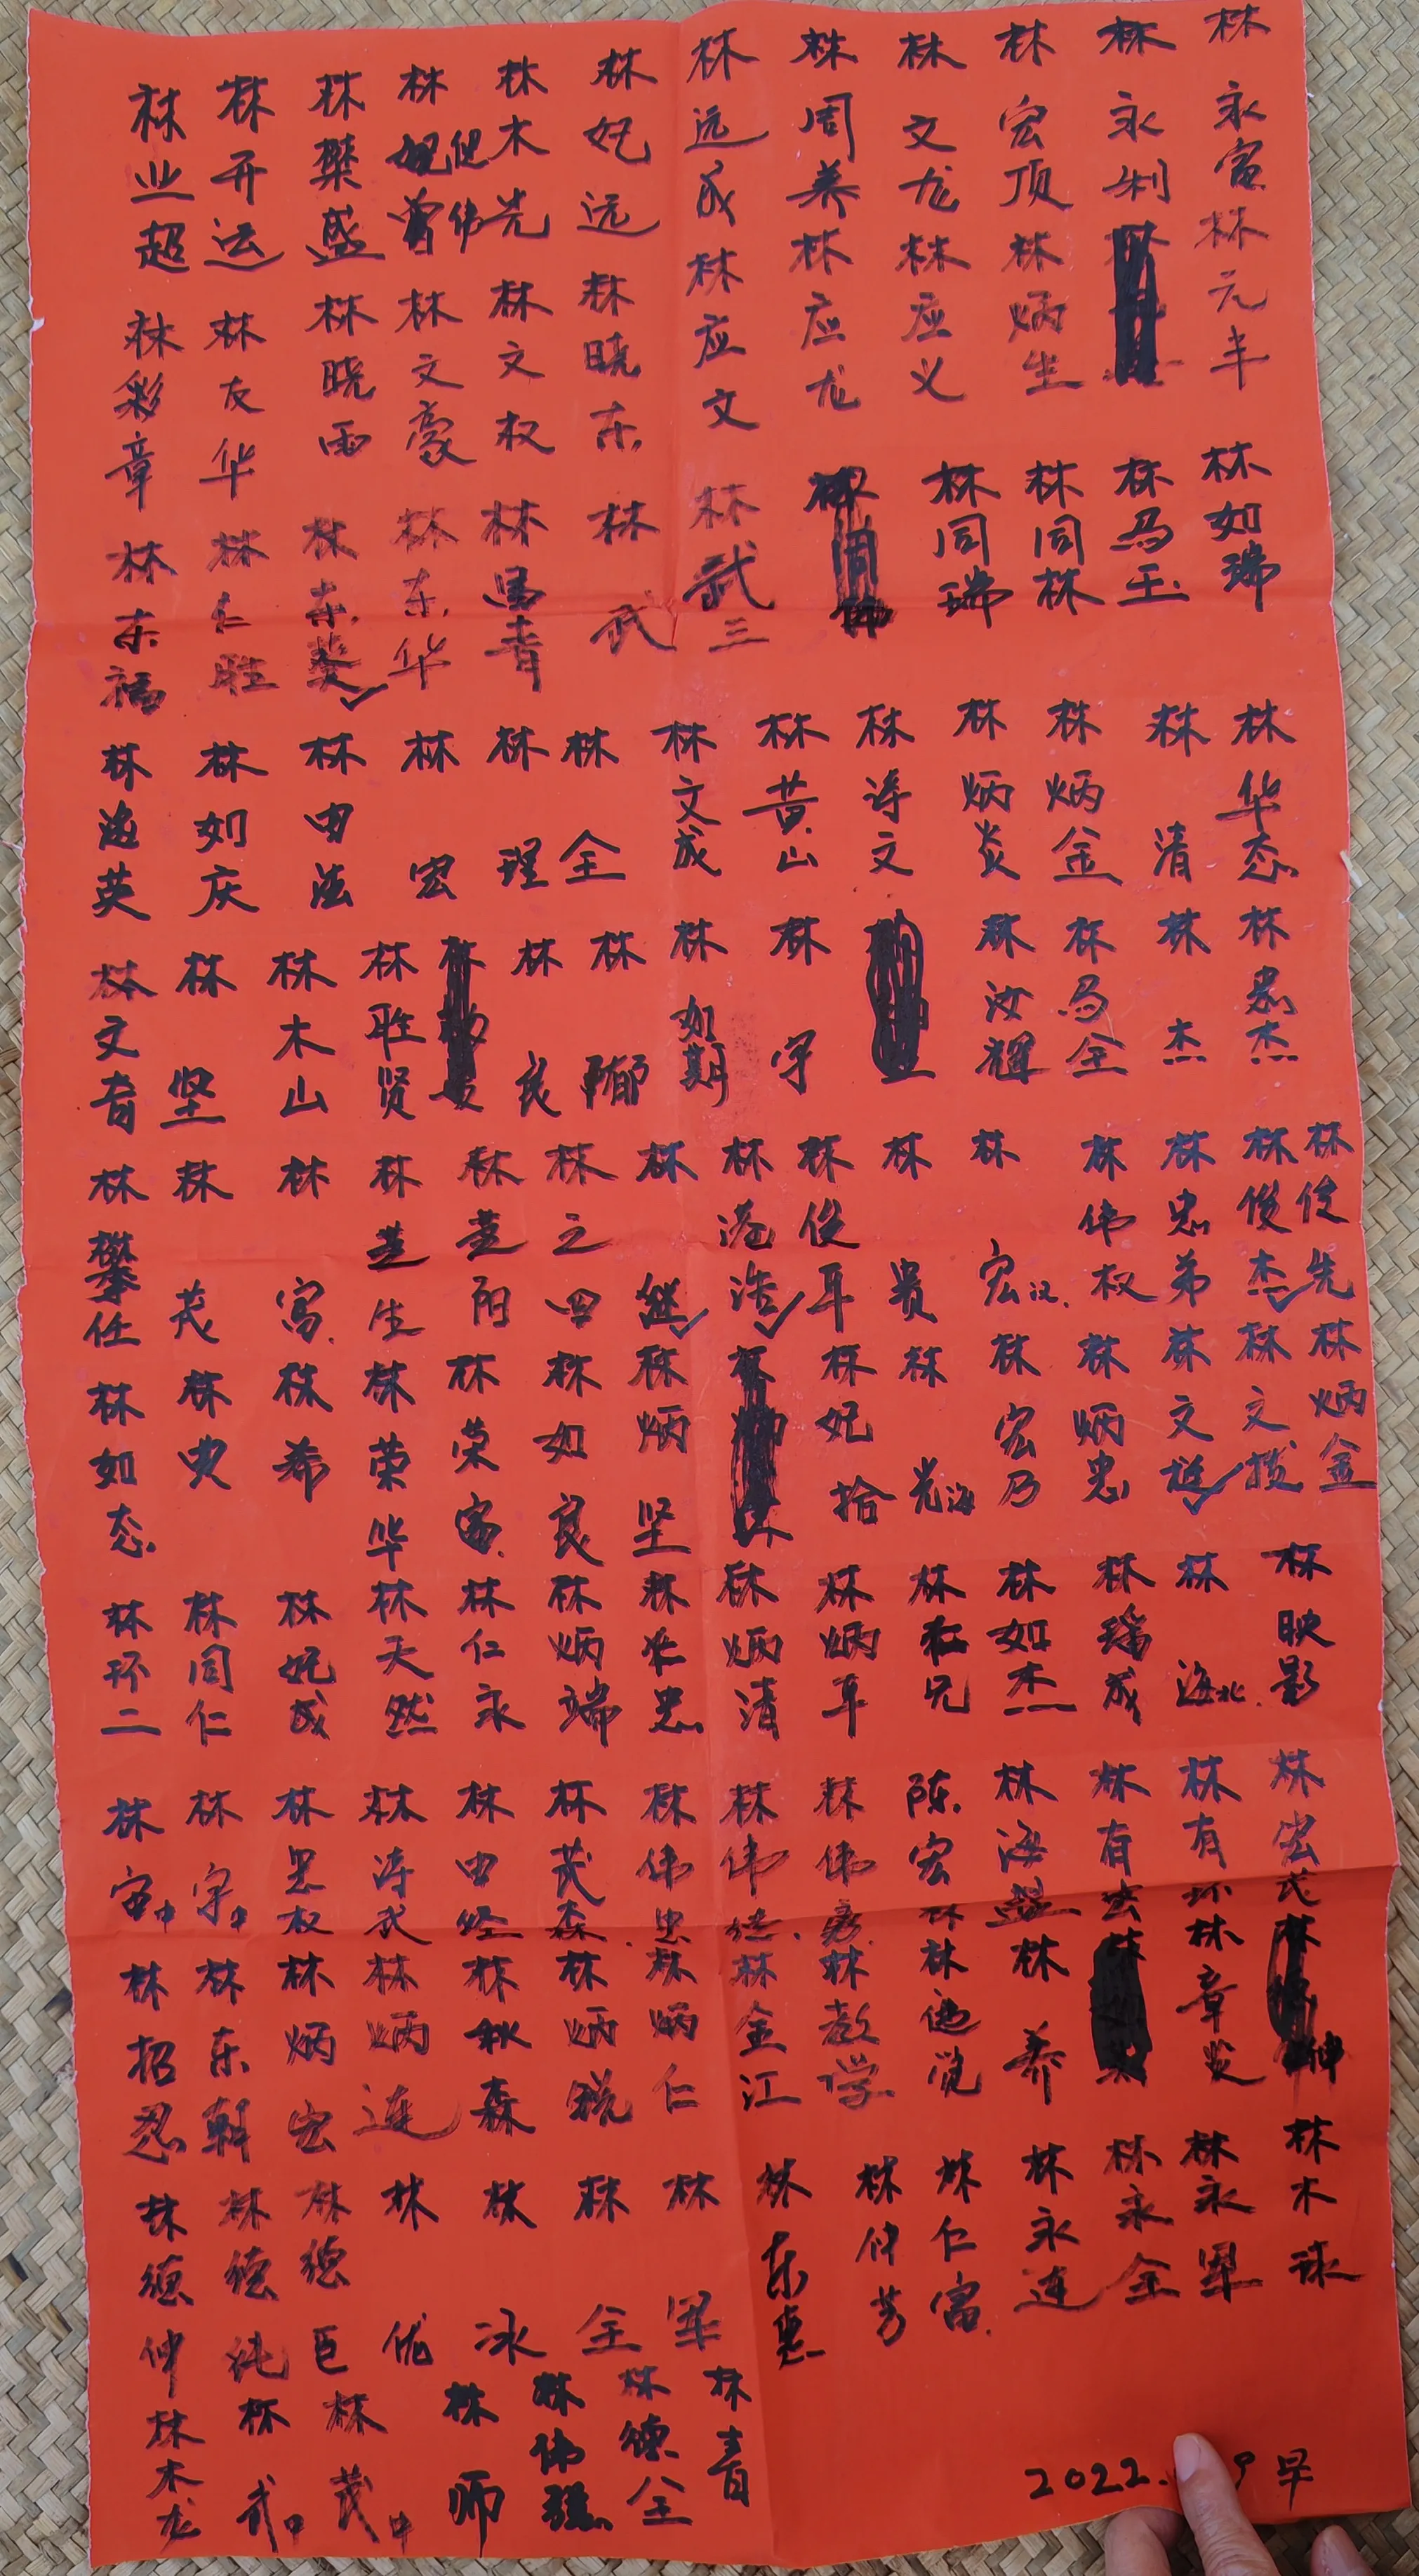 林永富
林永利
林宏顶
林文龙
林周养
林远成
林妃远
林木先
林樊盛
林开运
林业超
林元丰
林炳生
林应义
林应龙
林应文
林晓东
林文权
林文豪
林晓雨
林友华
林彩章
林如瑞
林马玉
林同林
林同瑞
林武三
林武
林马青
林东华
林东葵
林仁胜
林东福
林华态
林清
林炳金
林炳炎
林涛文
林黄山
林文成
林全
林理
林宏
林由法
林如庆
林逸英
林忠杰
林杰
林马全
林汝辉
林宇
林如期
林郁
林良
林胜贤
林木山
林坚
林文育
林俊先
林俊杰
林忠弟
林伟权
林宏汉
林贵
林俊平
林港浩
林继
林之四
林芝阳
林芝生
林富
林茂
林攀任
林炳金
林文揽
林文廷
林炳忠
林宏乃
林光海
林妃拾
林炳坚
林如良
林荣富
林荣华
林希
林史
林如态
林映影
林海北
林瑞成
林如杰
林在兄
林炳平
林炳清
林永忠
林炳端
林仁永
林天然
林妃成
林同仁
林环二
林宏茂
林有环
林有宏
林海盐
陈宏林
林伟彦
林伟德
林伟忠
林茂森
林由经
林涛武
林思权
林宇中
林宙中
林章炎
林养
林德觉
林教学
林金江
林炳仁
林炳锐
林秋森
林炳连
林炳宏
林东朝
林招忍
林木球
林永军
林永全
林永连
林仁富
林仲芳
林东惠
林军
林全
林冰
林优
林德巨
林德纯
林德仲
林青
林德全
林伟强
林师
林茂中
林武中
林木龙
2022. 9早